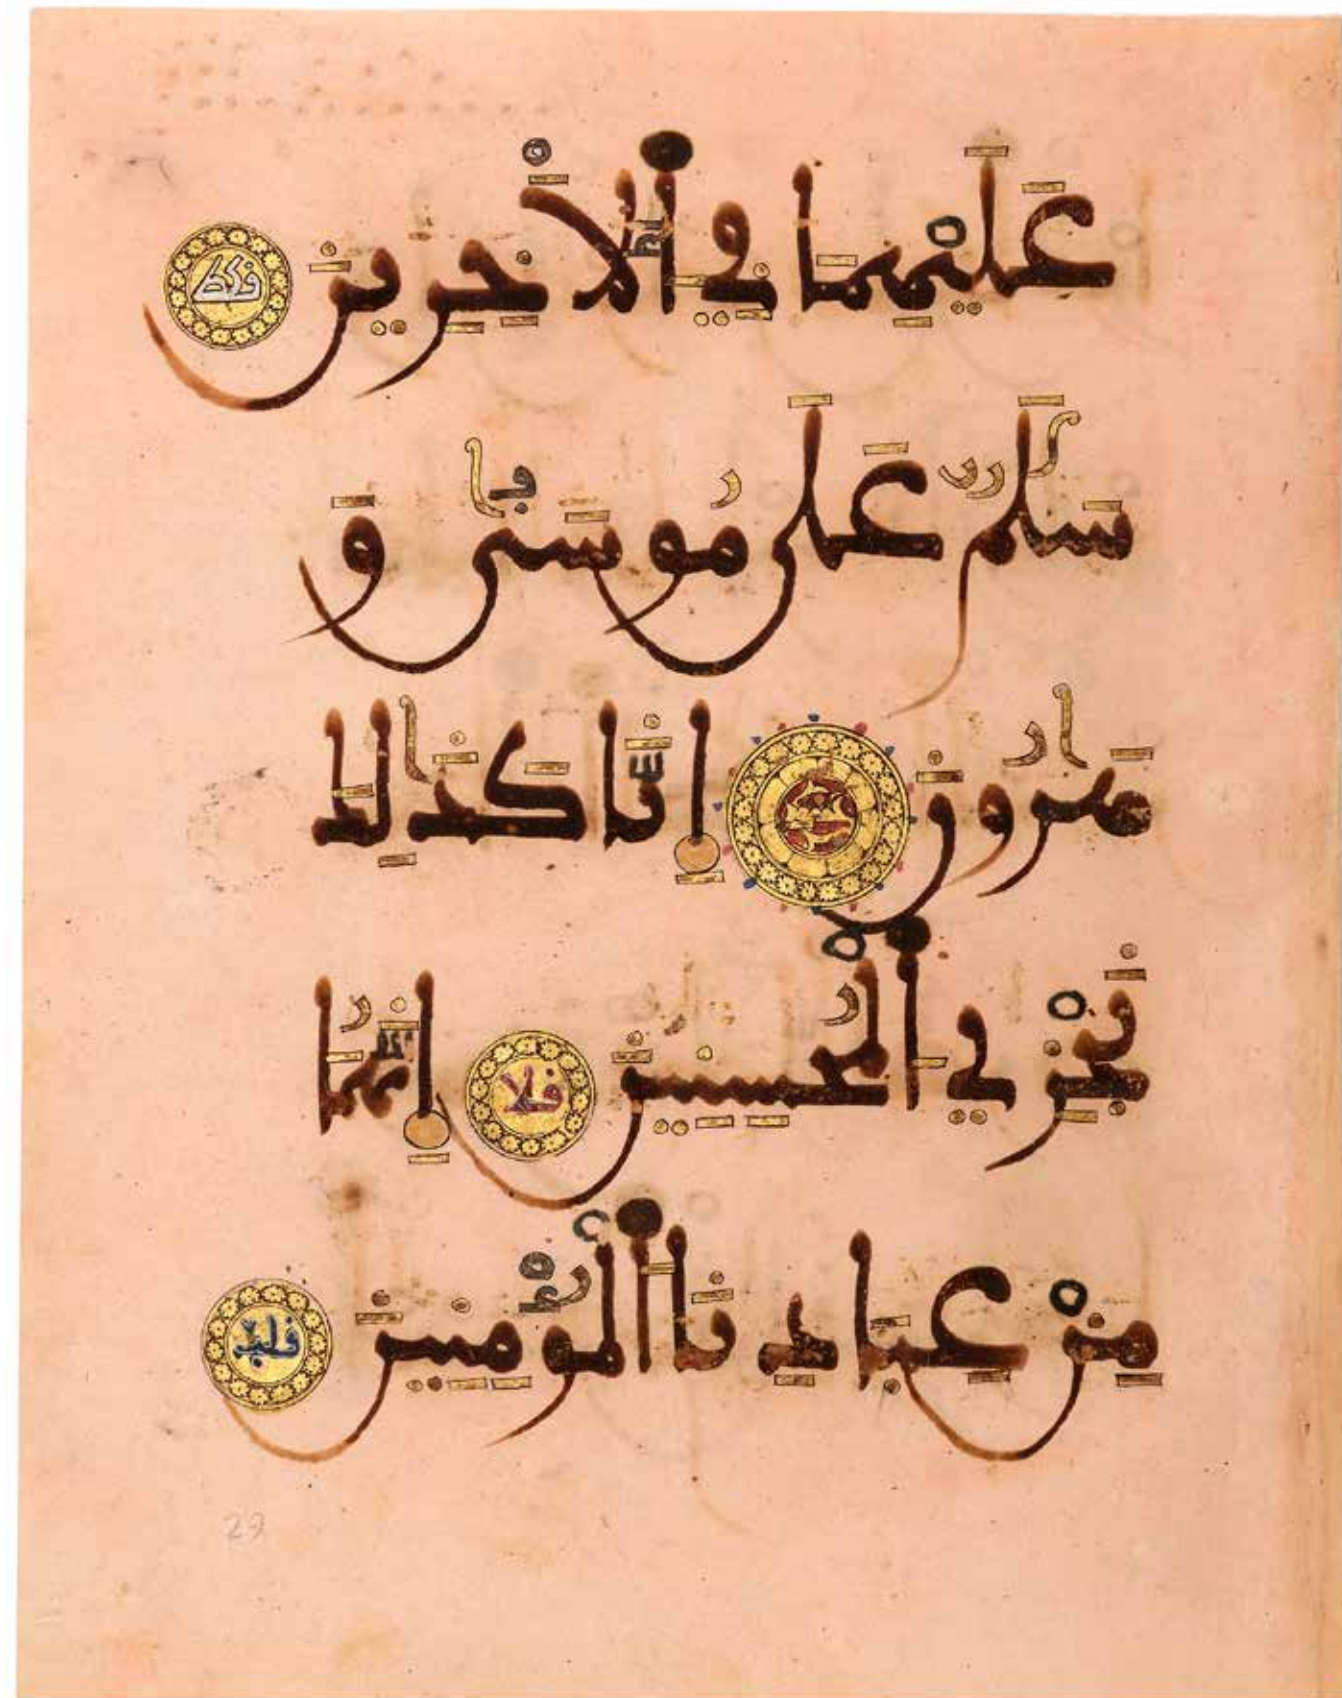 عليهما في الاخرين قكط
سلم على موسى و
هرون انا كذلك
نجزي المحسنين قلا انهما
من عبادنا المومنين قلب
29